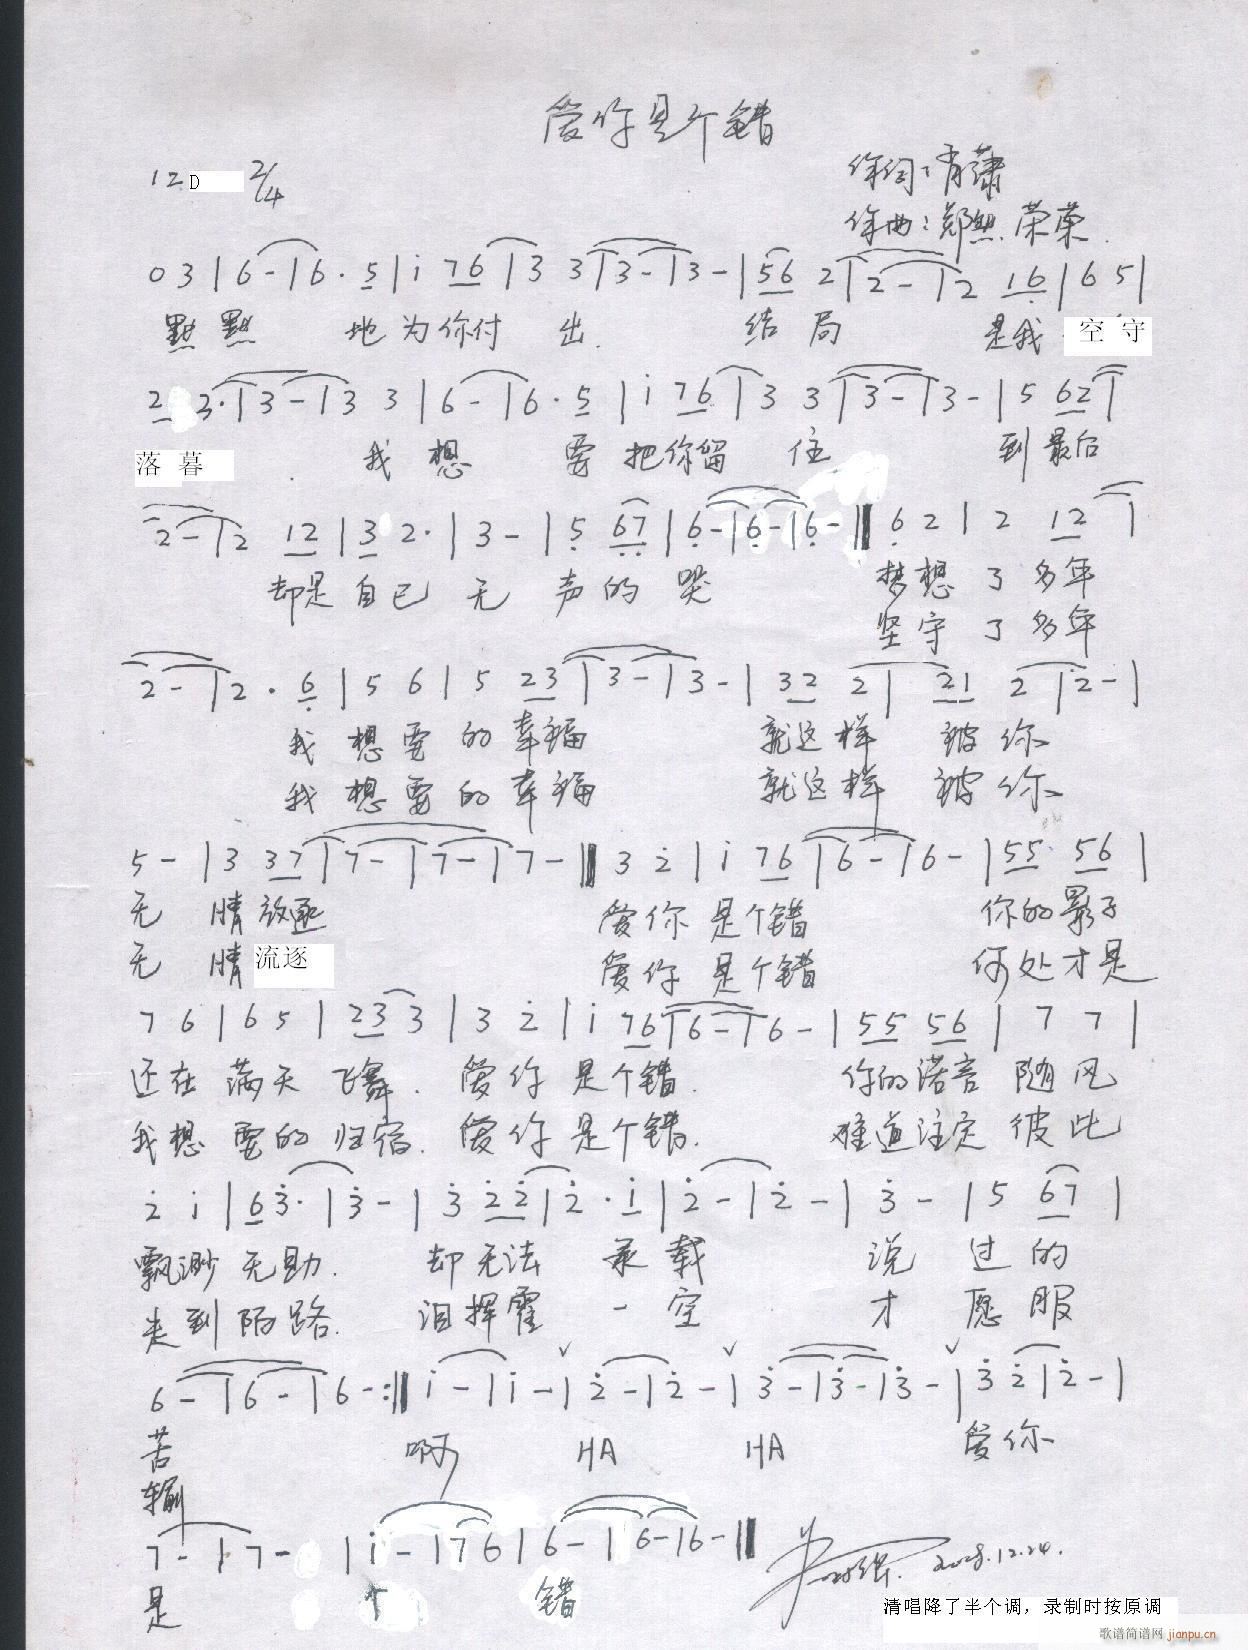 爱你是个错
1=D 2/4
作词:肖萧
作曲:郑
0 3 | 6 - | 6 . 5 | i 7 6 | 3 3 | 3 - | 3 - | 5 6 2 | 2 - | 2 1 6 | 6 5 |
默默 地为你付出 结局 是我 空守
2 3 . | 3 - | 3 3 | 6 - | 6 . 5 | i 7 6 | 3 3 | 3 - | 3 - | 5 6 2 |
落暮 我想 要把你留住 到最后
2 - | 2 1 2 | 3 2 . | 3 - | 5 6 7 | 6 - | 6 - | 6 - || 6 2 | 2 1 2 |
却是自己无声的哭 梦想了多年
坚守了多年
2 - | 2 . 6 | 5 6 | 5 2 3 | 3 - | 3 - | 3 2 2 | 2 1 2 | 2 - |
我想要的幸福 就这样被你
我想要的幸福 就这样被你
5 - | 3 3 7 | 7 - | 7 - | 7 - || 3 2 | i 7 6 | 6 - | 6 - | 5 5 5 6 |
无情放逐 爱你是个错 你的影子
无情流逐 爱你是个错 何处才是
7 6 | 6 5 | 2 3 3 | 3 2 | i 7 6 | 6 - | 6 - | 5 5 5 6 | 7 7 |
还在满天飞舞. 爱你是个错. 你的诺言随风
我想要的归宿. 爱你是个错. 难道注定彼此
2 i | 6 3 . | 3 - | 3 2 2 | 2 . i | 2 - | 2 - | 3 - | 5 6 7 |
飘渺无助. 却无法承载 说过的
走到陌路. 泪挥霍一空 才愿服
6 - | 6 - | 6 - :|| i - | i - | 2 - | 2 - | 3 - | 3 - | 3 - | 3 2 | 2 - |
苦 啊 HA HA 爱你
输
7 - | 7 - | i - | 7 6 | 6 - | 6 - | 6 - ||
是 个 错
2008.12.24.
清唱降了半个调，录制时按原调
歌谱简谱网 jianpu.cn